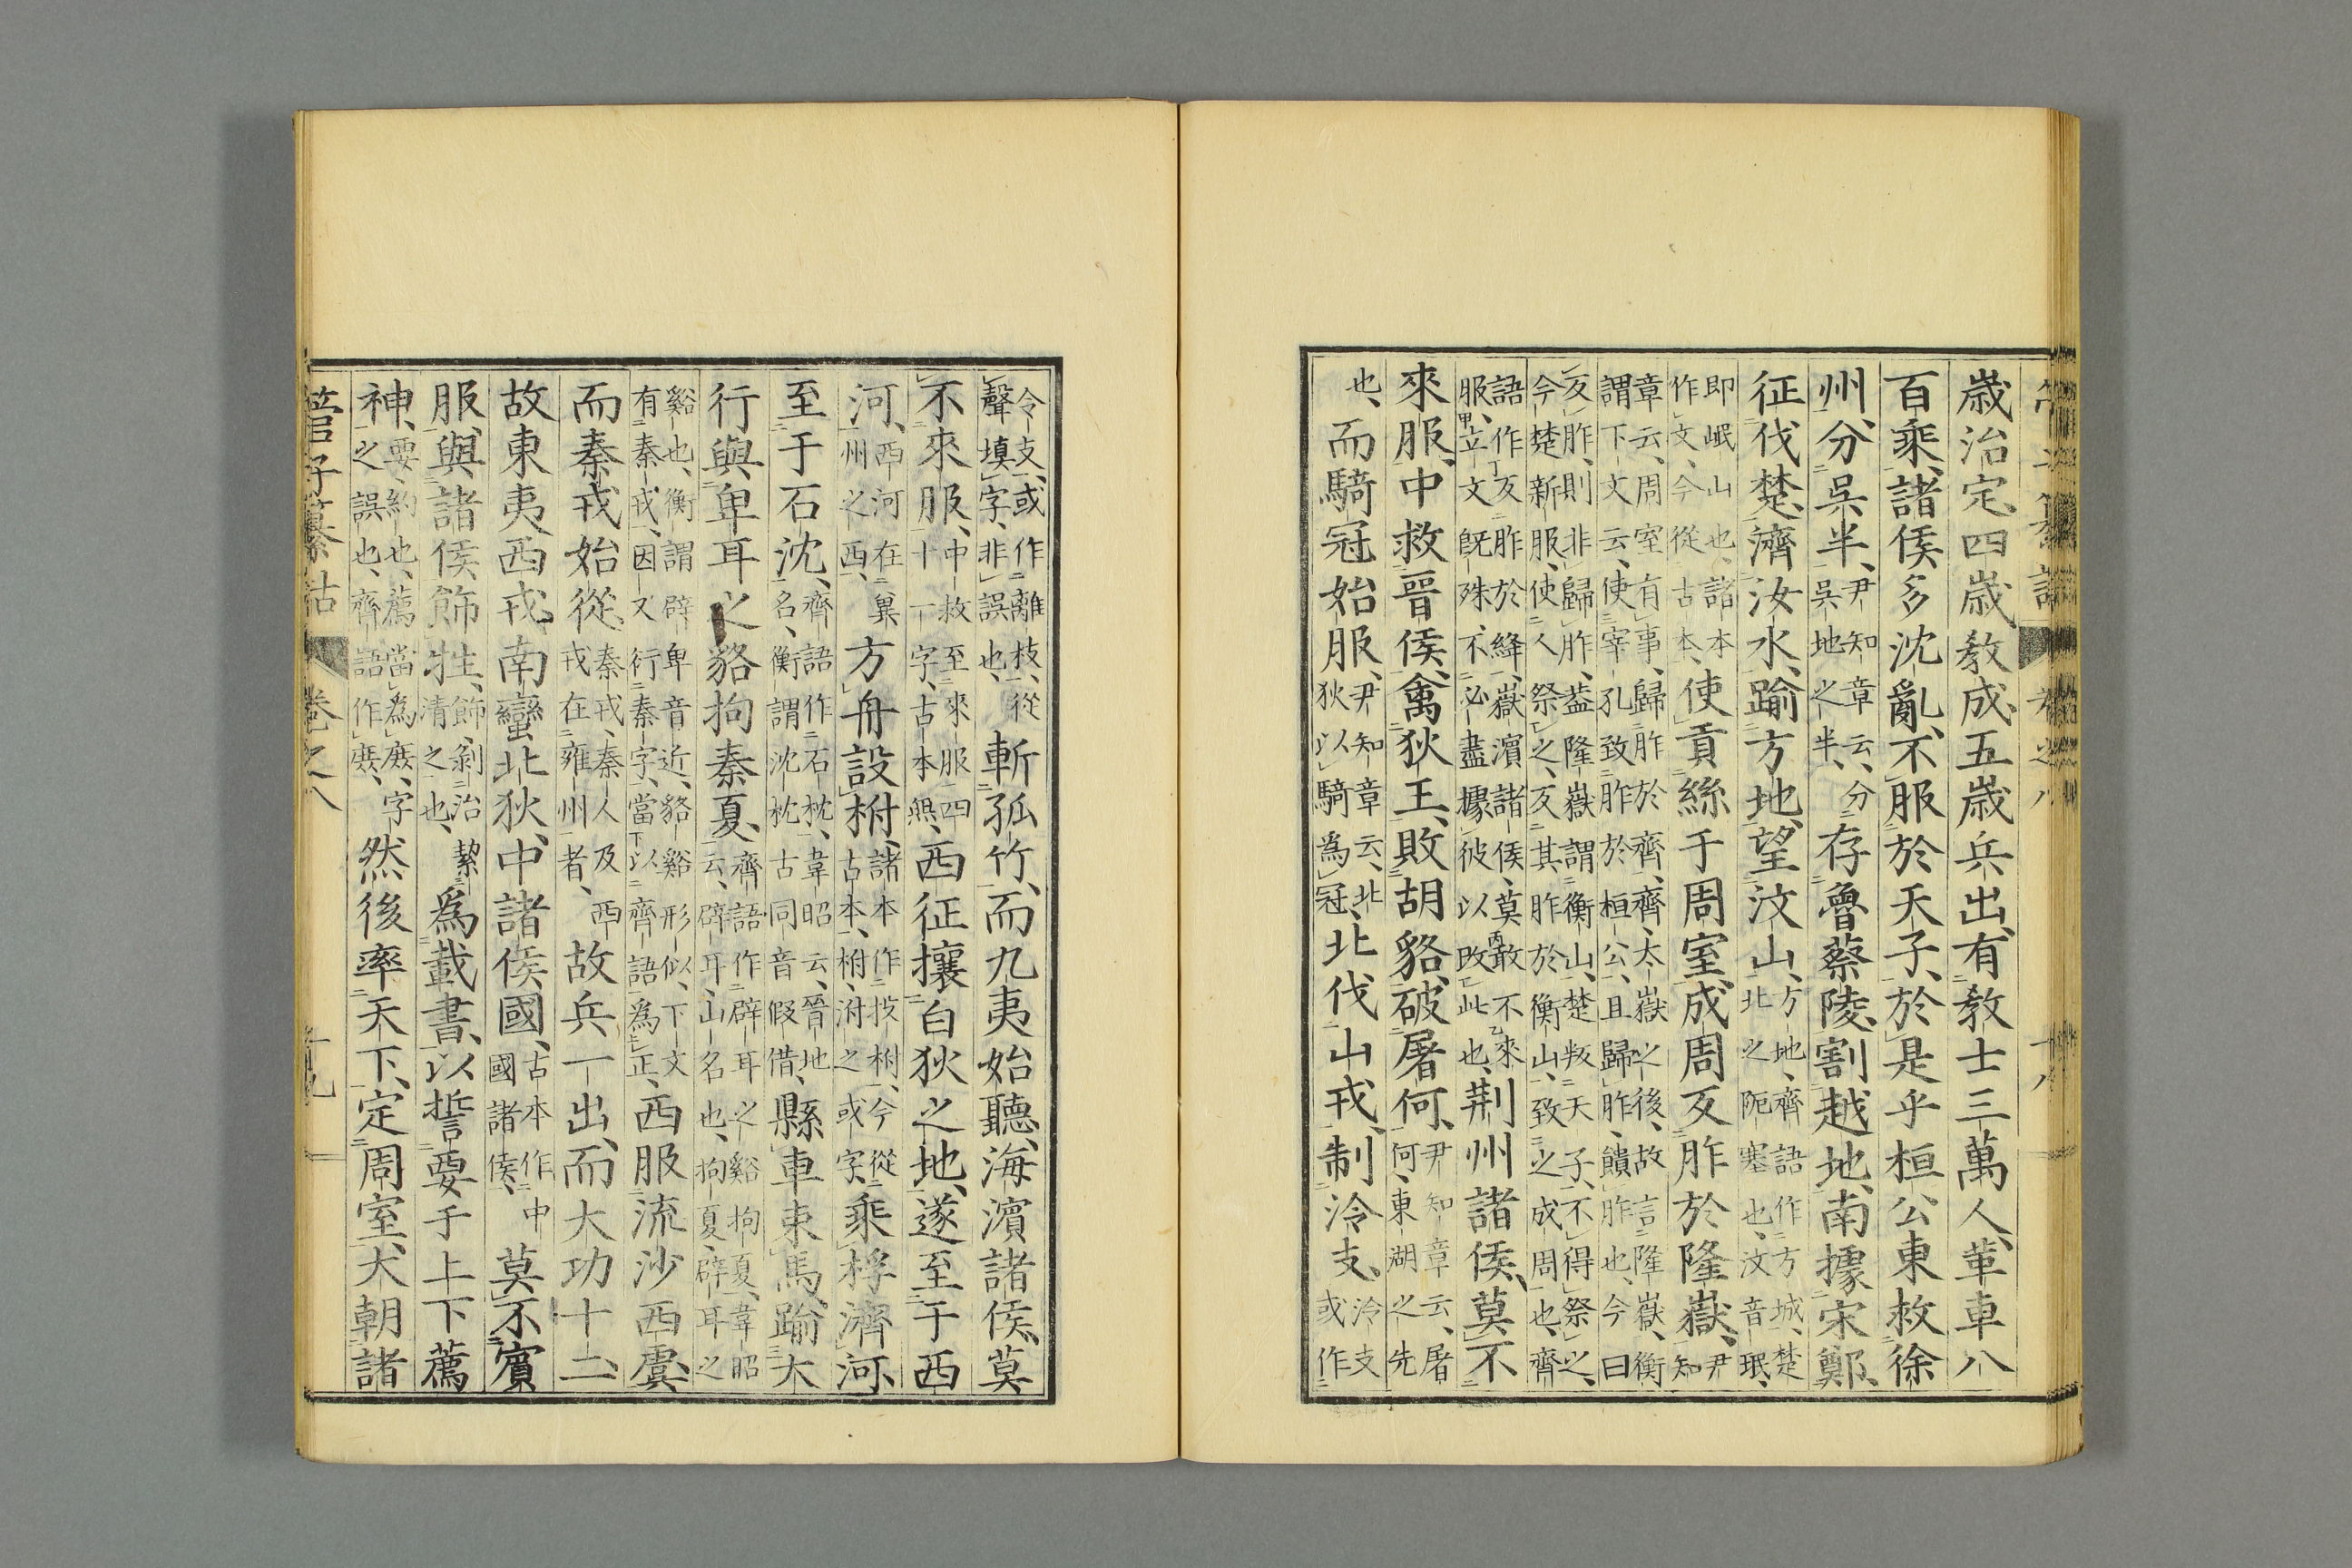 歳治定四歳教成五歳兵出有教士三萬人革車八
百乘諸侯多沈亂不服於天子於是乎桓公東救徐
州分吳半尹知章云分吳地之半存魯蔡陵割越地南據宋鄭
征伐楚濟汝水踰方地望汶山方地齊語作方城楚北之阨塞也汶音珉
即岷山也諸本作文今從古本使貢絲于周室成周反胙於隆嶽尹知
章云周室有事歸胙於齊齊太嶽之後故言隆嶽衡謂下文云使宰孔致胙於桓公且歸胙饋胙也今曰
反胙則非歸胙蓋隆嶽謂衡山楚叛天子不得祭之今楚新服使人祭之反其胙於衡山致之成周也齊
語作反胙於絳嶽濱諸侯莫敢不來服立文既殊不必盡據彼以改此也荆州諸侯莫不
來服中救晉侯禽狄王敗胡貉破屠何尹知章云屠何東湖之先
也而騎冠始服尹知章云北狄以騎為冠北伐山戎制泠支泠支或作
令支或作離枝從聲填字非誤也斬孤竹而九夷始聽海濱諸侯莫
不來服中救至來服四十一字古本無西征攘白狄之地遂至于西
河西河在冀州之西方舟設柎諸本作投柎今從古本柎泭之或字乘桴濟河
至于石沈齊語作石枕韋昭云晉地名衡謂沈枕古同音假借縣車束馬踰大
行與卑耳之貉拘秦夏齊語作辟耳之谿拘夏韋昭云辟耳山名也拘夏辟耳之
谿也衡謂辟卑音近貉谿形似下文有秦戎因又衍秦字當以齊語為正西服流沙西虞
而秦戎始從秦戎秦人及西戎在雍州者故兵一出而大功十二
故東夷西戎南蠻北狄中諸侯國古本作中國諸侯莫不賓
服與諸侯飾牲飾剝治絜清之也為載書以誓要于上下薦
神要約也薦當為庶字之誤也齊語作庶然後率天下定周室大朝諸
管子纂詁 卷之八 十九